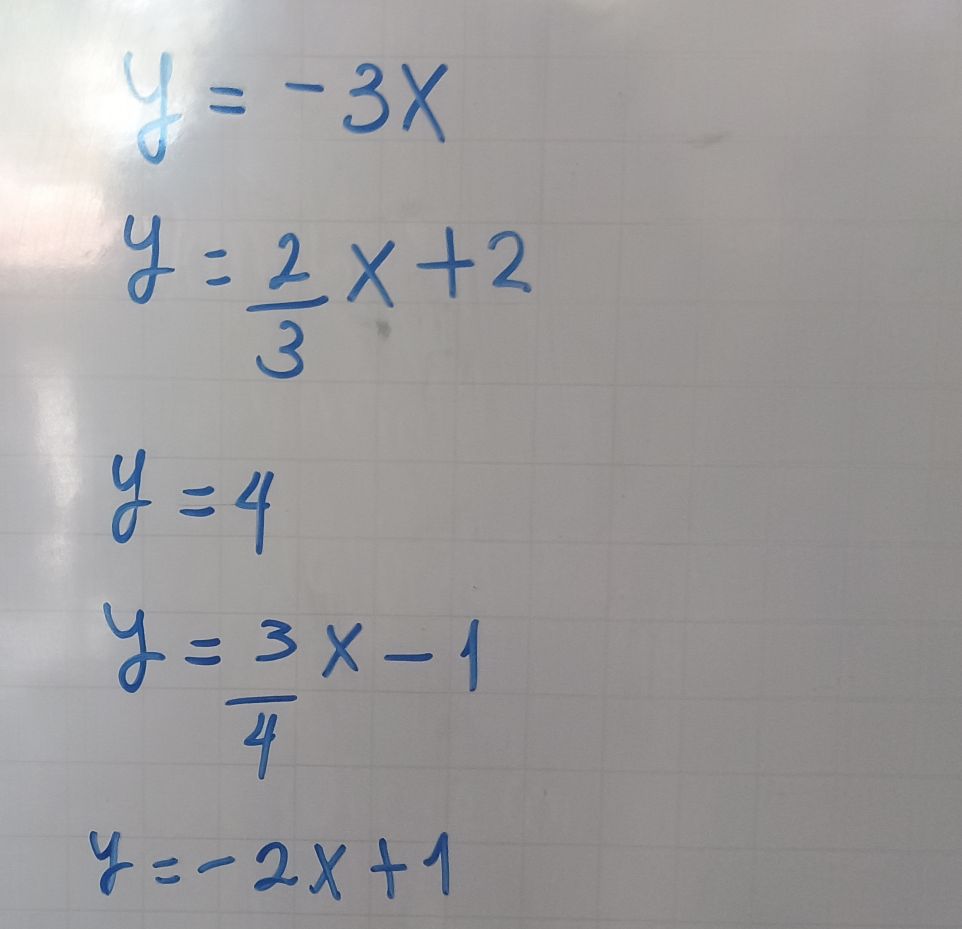 y = -3x
y = 2/3 x + 2
y = 4
y = 3/4 x - 1
y = -2x + 1